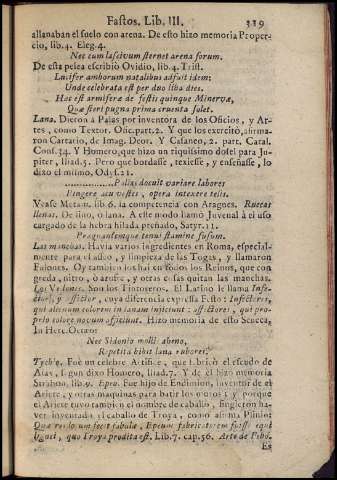 Fastos. Lib. III. 119
allanaban el suelo con arena. De esto hizo memoria Proper-
cio, lib. 4. Eleg. 4.
Nec cum lascivum sternet arena forum.
De esta pelea escribio Ovidio, lib. 4. Trist.
Lucifer amborum natalibus adfuit idem:
Unde celebrata est per duo liba dies.
Hac est armiferæ de festis quinque Minervæ,
Quæ fieri pugna prima cruenta solet.
Lana. Dieron à Palas por inventora de los Oficios, y Ar-
tes, como Textor. Ofic. part. 2. Y que los exercitò, afirma-
ron Cartario, de Imag. Deor. Y Casaneo, 2. part. Catal.
Cons. 34. Y Homero, que hizo un riquissimo dosel para Ju-
piter, Iliad. 5. Pero que bordasse, texiesse, y enseñasse, lo
dixo el mismo, Odys. 21.
Pallas docuit variare labores
Pingere acu vestes, opera intexere telis.
Vease Metam. lib. 6. la competencia con Aragnes. Ruecas
llenas. De lino, o lana. A este modo llamò Juvenal à el uso
cargado de la hebra hilada preñado, Satyr. 11.
Pragnantemque tenui stamine fusum.
Las manchas. Havia varios ingredientes en Roma, especial-
mente para el adò, y limpieza de las Togas, y llamaron
Fulones. Oy tambien los hai en todos los Reinos, que con
greda, nitro, ò azufre, y otras cosas quitan las manchas.
Los Velones. Son los Tintoreros. El Latino le llama Infe-
ctor, y offector, cuya diferencia expressa Festo: Infectores,
qui alienum colorem in lanam injiciunt: offectores, qui pro-
prio colore novum officiunt. Hizo memoria de esto Seneca,
In Herc. Octæo:
Nec Sidonio mollis aheno,
Repetita bibit lana rubores.
Tychio. Fue un celebre Artifice, que fabricò el escudo de
Aias, segun dixo Homero, Iliad. 7. Y de el hizo memoria
Strabon, lib. 9. Epeo. Fue hijo de Endimion, inventor de el
Ariete, y otras maquinas para batir los muros; y porque
el Ariete tuvo tambien el nombre de caballo, fingieron ha-
ver inventado el caballo de Troya, como afirma Plinio:
fecit fabulæ, Epeum fabricatorem fuisse equi
quo Troya prodita est, Lib. 7. cap. 56. Arte de Febo.
Es